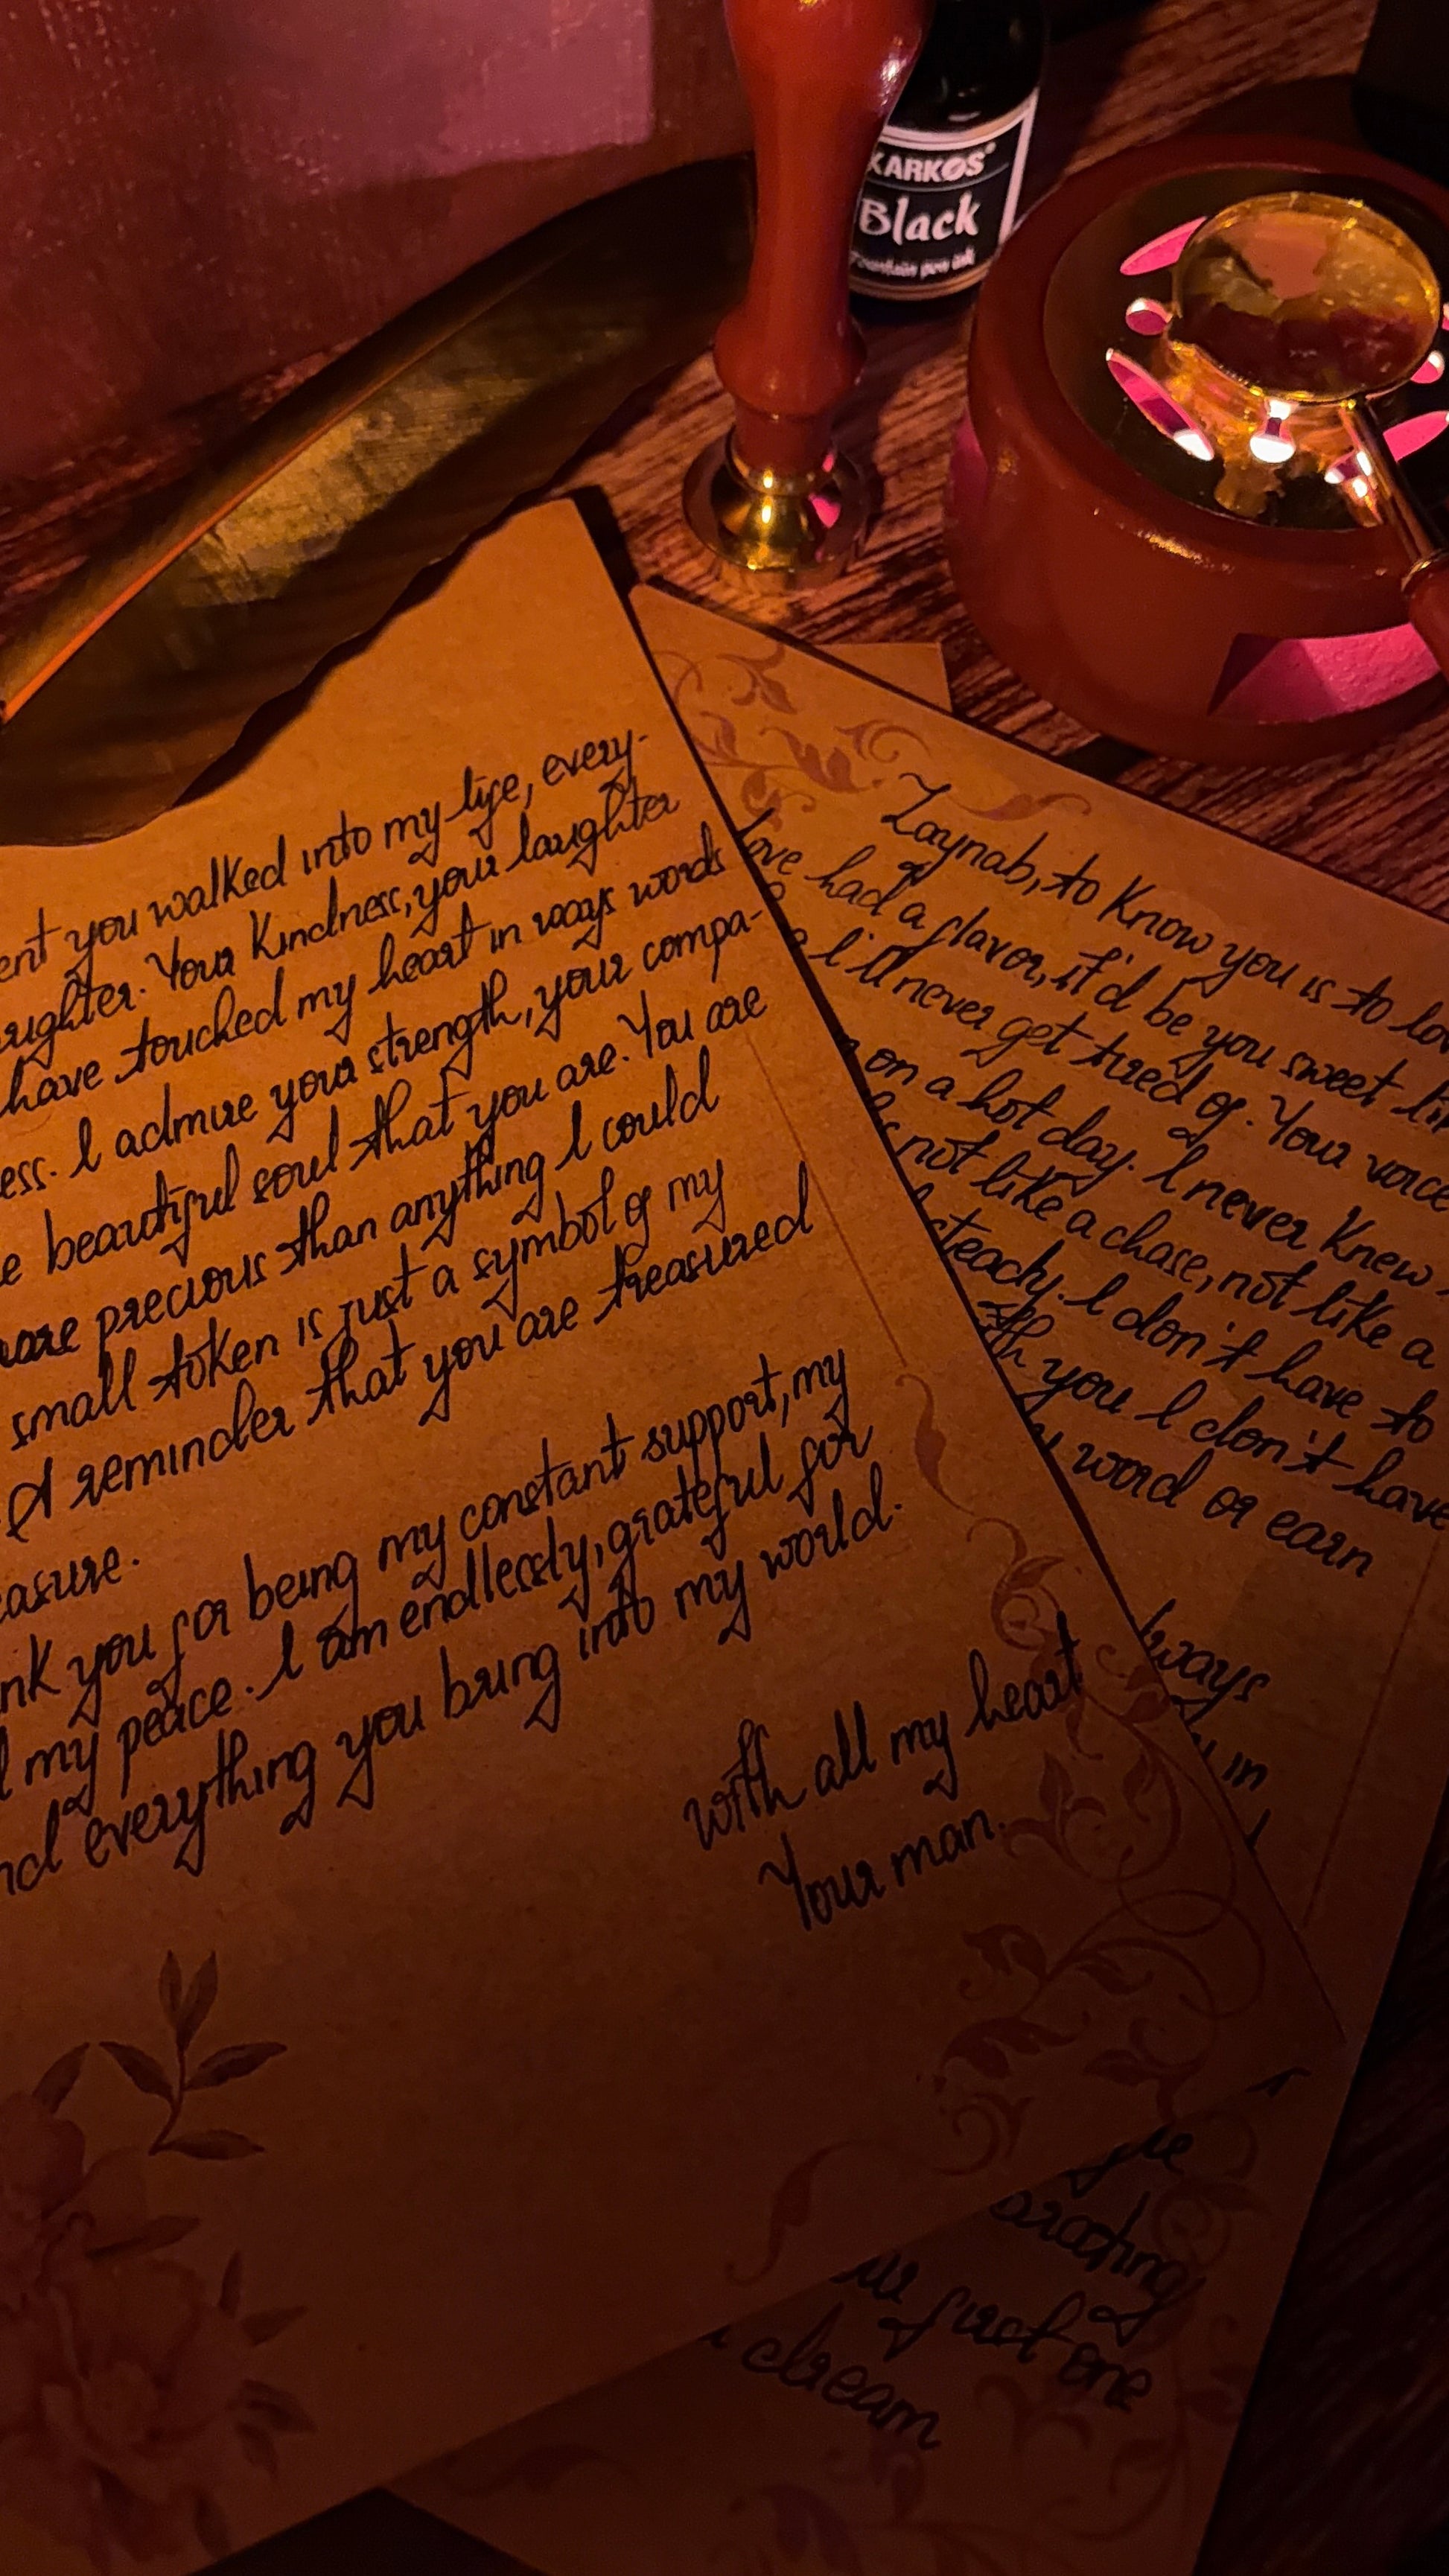 KARKOS
Black
Fountain pen ink
you walked into my life, every-
Your Kindness, your laughter
have touched my heart in ways words
I admire your strength, your compa-
beautiful soul that you are. You are
precious than anything I could
small token is just a symbol of my
A reminder that you are treasured
you for being my constant support, my
my peace. I am endlessly, grateful for
everything you bring into my world.
with all my heart
Your man.
Zaynab, to Know you is to
had a flavor, it'd be you sweet
I'll never get tired of. Your voice
on a hot day. I never Knew
not like a chase, not like a
steady. I don't have to
you I don't have
word or earn
in
first one
dream